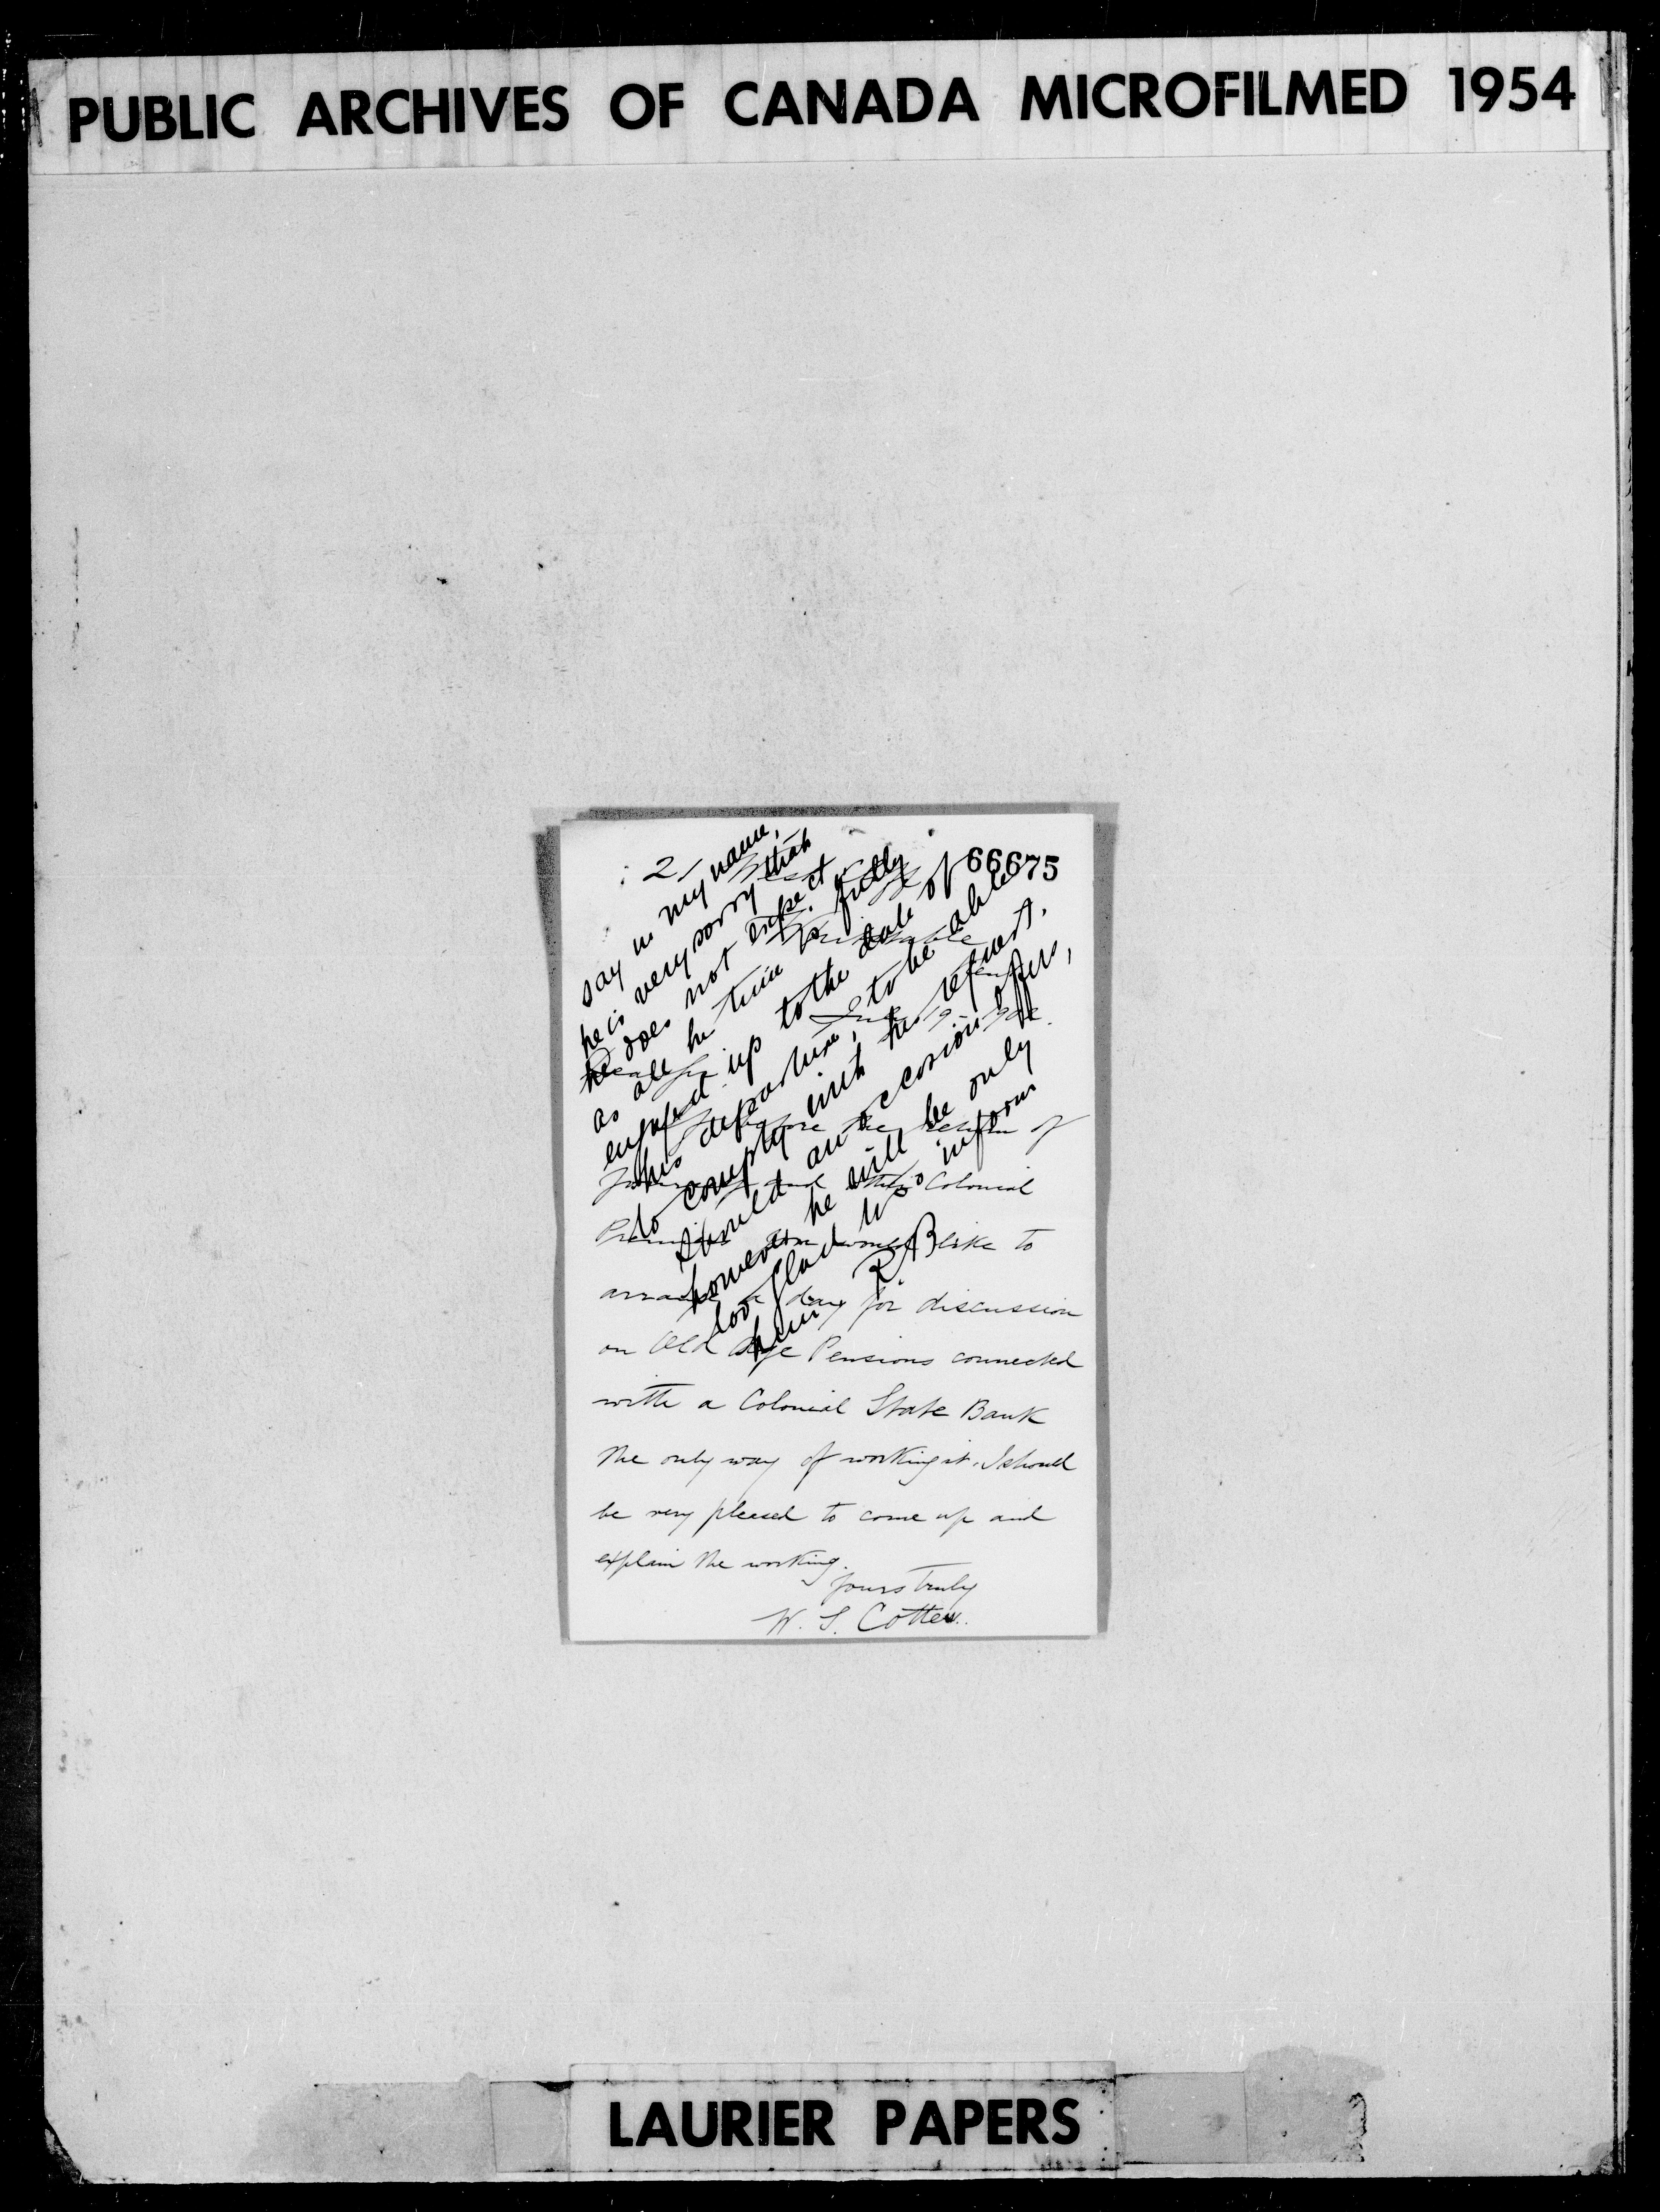 PUBLIC ARCHIVES OF CANADA MICROFILMED 1954
2
66675
say in my name,
he is very sorry that
he does not expect
as all his time is fully
engaged up to the date of
his departure, to be able
to comply with his request.
Should an occasion offer,
however he will be only
too glad to inform
him RB
June 19 - 902
before the return of
and other Colonial
would like to
arrange a day for discussion
on Old Age Pensions connected
with a Colonial State Bank
the only way of working it. I should
be very pleased to come up and
explain the working.
Yours truly
W. S. Cotter.
LAURIER PAPERS